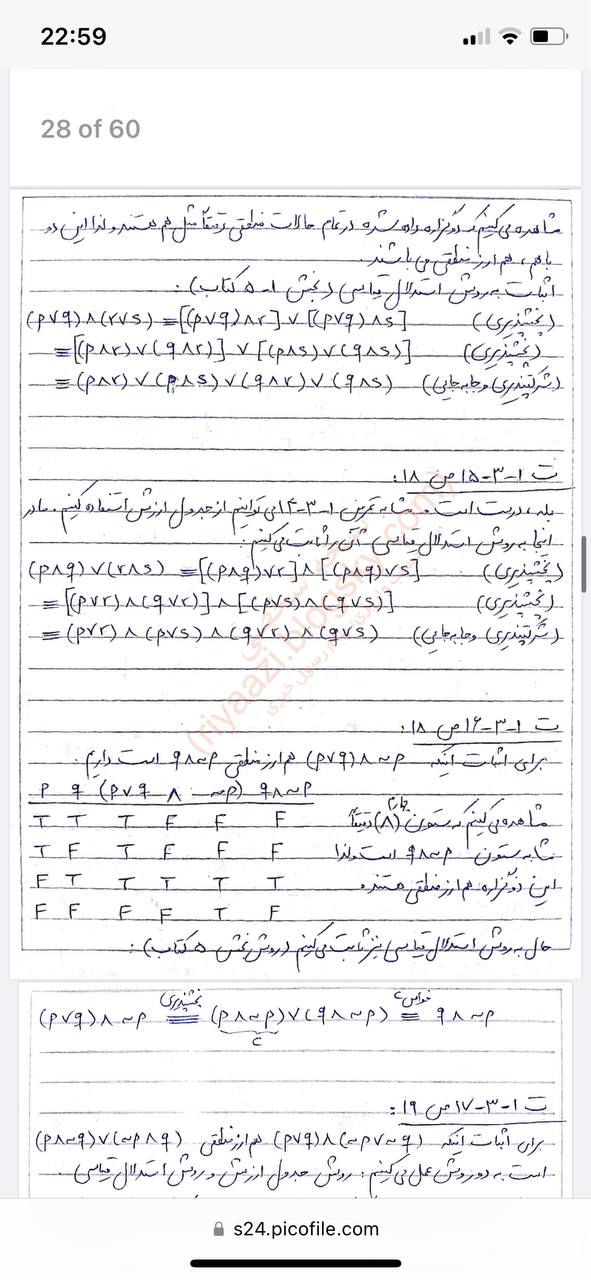 22:59
28 of 60
مشاهده می‌کنیم که دو گزاره داده شده در تمام حالات منطقی دقیقاً مثل هم هستند و لذا این دو
با هم، هم ارز منطقی می باشند.
اثبات به روش استدلال قیاسی (بخش ۱-۵ کتاب):
(p∨q)∧(r∨s) ≡ [(p∨q)∧r]∨[(p∨q)∧s] (پخشپذیری)
≡ [(p∧r)∨(q∧r)] ∨ [(p∧s)∨(q∧s)] (پخشپذیری)
≡ (p∧r)∨(p∧s)∨(q∧r)∨(q∧s) (شرکتپذیری و جابه جایی)
ت ۱-۳-۱۵ ص ۱۸:
بله، درست است و مشابه تمرین ۱-۳-۱۴ می توانیم از جدول ارزش استفاده کنیم. ما در
اینجا به روش استدلال قیاسی آن را ثابت می‌کنیم:
(p∧q)∨(r∧s) ≡ [(p∧q)∨r]∧[(p∧q)∨s] (پخشپذیری)
≡ [(p∨r)∧(q∨r)]∧[(p∨s)∧(q∨s)] (پخشپذیری)
≡ (p∨r)∧(p∨s)∧(q∨r)∧(q∨s) (شرکتپذیری و جابه جایی)
(riyaazi.blogsky.com)
رسول خیری
ت ۱-۳-۱۶ ص ۱۸:
برای اثبات اینکه (p∨q)∧~p هم ارز منطقی q∧~p است داریم:
p q (p∨q ∧ ~p) q∧~p
T T T F F F مشاهده می‌کنیم که ستون چهارم (∧) دقیقاً
T F T F F F مشابه ستون q∧~p است و لذا
F T T T T T این دو گزاره هم ارز منطقی هستند.
F F F F T F
حال به روش استدلال قیاسی نیز ثابت می‌کنیم (روش بخش ۵ کتاب):
(p∨q)∧~p ≡ پخشپذیری (p∧~p)∨(q∧~p) ≡ خواص c q∧~p
c
ت ۱-۳-۱۷ ص ۱۹:
برای اثبات اینکه (p∨q)∧(~p∨~q) هم ارز منطقی (p∧~q)∨(~p∧q)
است به دو روش عمل می‌کنیم: روش جدول ارزش و روش استدلال قیاسی.
s24.picofile.com